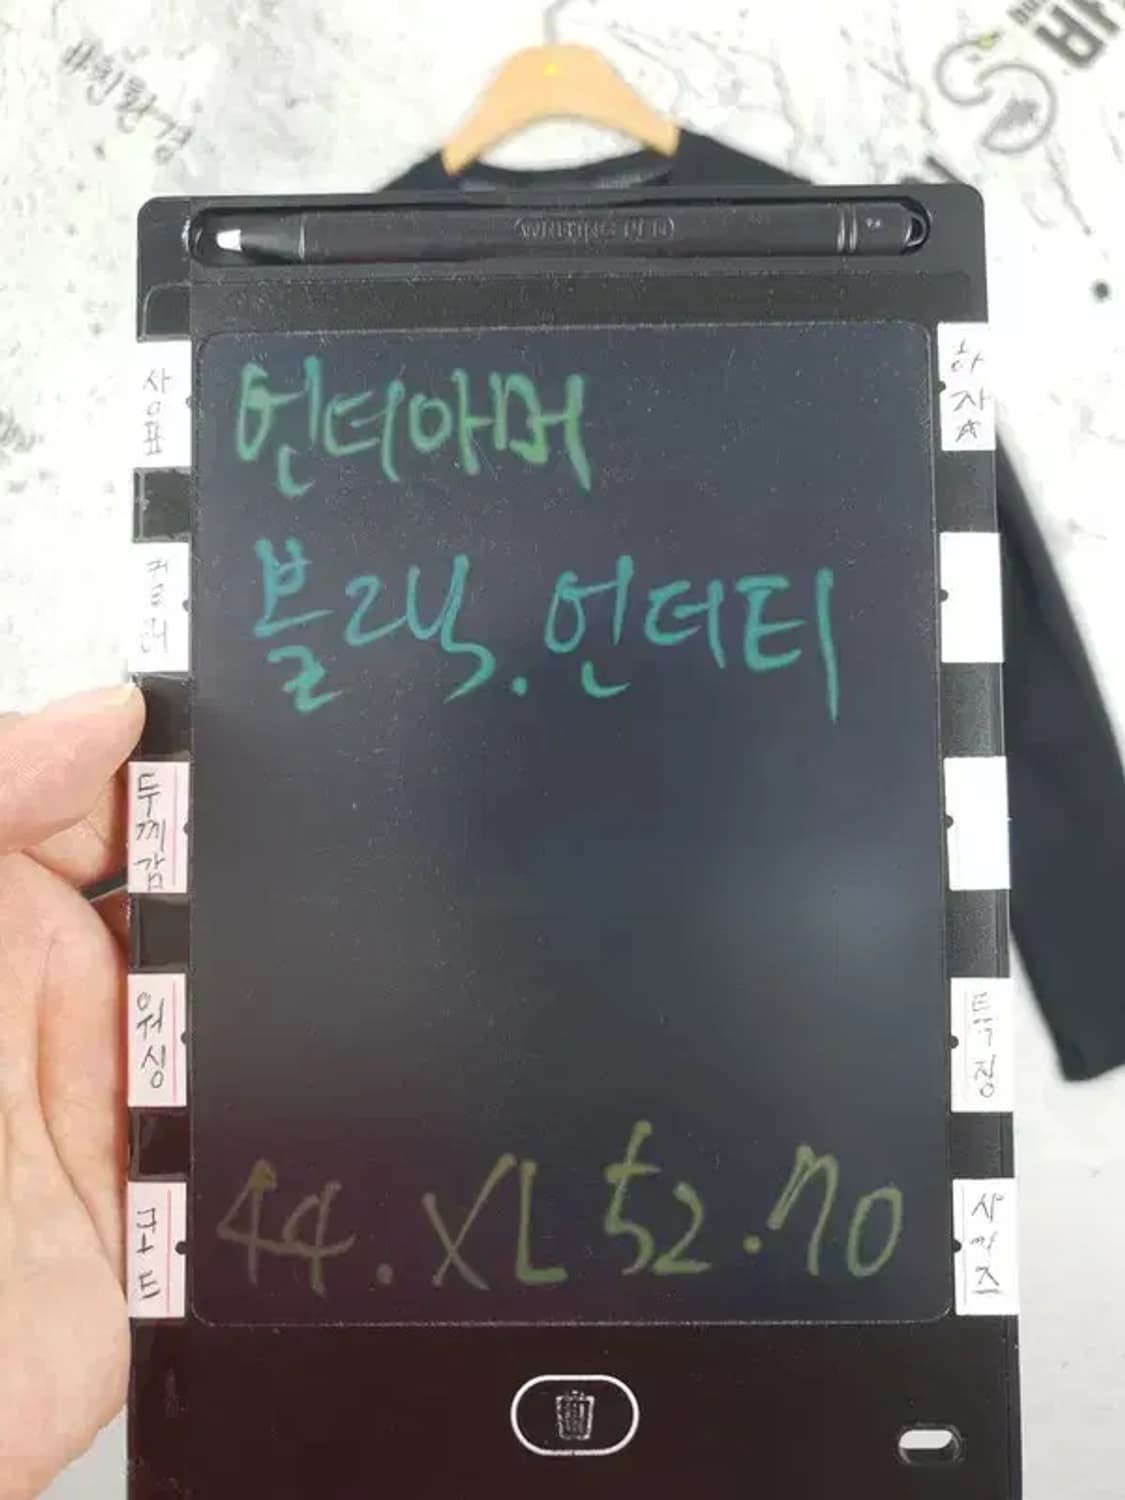 #친환경
WRITING PEN
언더아머
블랙.언더티
44.XL 52.70
사용표
컬러
두께감
워싱
코드
하자☆
특징
사이즈